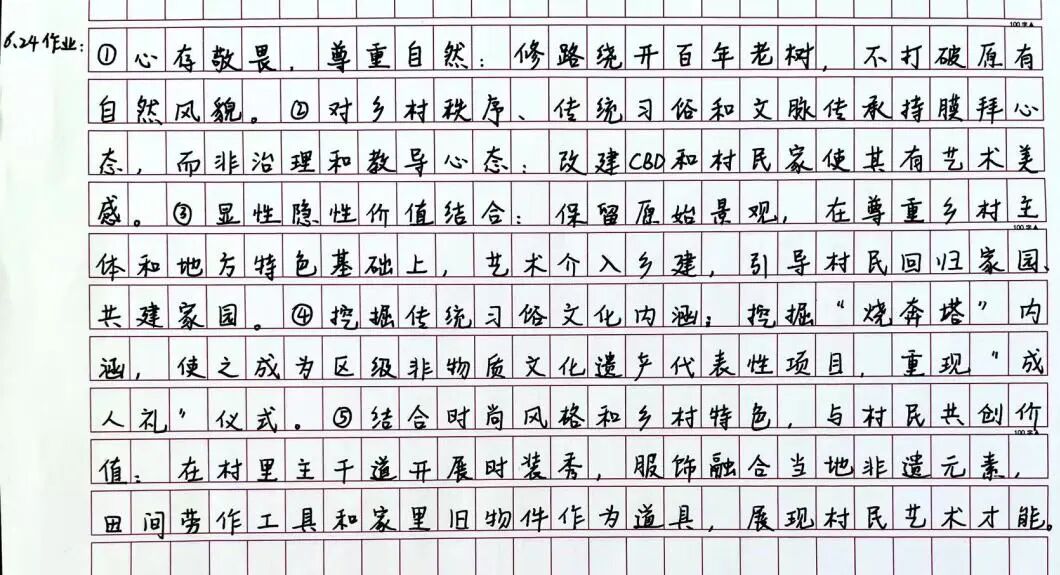 6.24作业：①心存敬畏，尊重自然：修路绕开百年老树，不打破原有
自然风貌。②对乡村秩序、传统习俗和文脉传承持膜拜心
态，而非治理和教导心态：改建CBD和村民家使其有艺术美
感。③显性隐性价值结合：保留原始景观，在尊重乡村主
体和地方特色基础上，艺术介入乡建，引导村民回归家园、
共建家园。④挖掘传统习俗文化内涵：挖掘“烧奔塔”内
涵，使之成为区级非物质文化遗产代表性项目，重现“成
人礼”仪式。⑤结合时尚风格和乡村特色，与村民共创价
值：在村里主干道开展时装秀，服饰融合当地非遗元素，
田间劳作工具和家里旧物件作为道具，展现村民艺术才能。